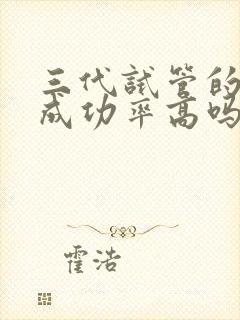 三代试管的
成功率高吗
霍浩